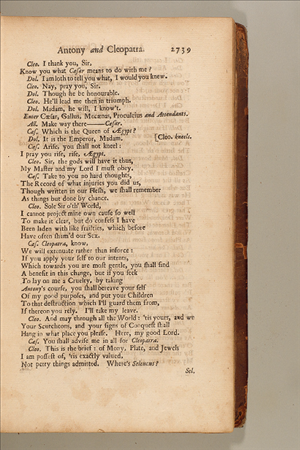 Antony and Cleopatra. 2739
Cleo. I thank you, Sir.
Know you what Cæsar means to do with me?
Dol. I am loth to tell you what, I would you knew.
Cleo. Nay, pray you, Sir.
Dol. Though he be honourable.
Cleo. He'll lead me then in triumph.
Dol. Madam, he will, I know't.
Enter Cæsar, Gallus, Mecænas, Proculeius and Attendants.
All. Make way there——Cæsar.
Cæs. Which is the Queen of Ægypt?
Dol. It is the Emperor, Madam. [Cleo. kneels.
Cæs. Arise, you shall not kneel:
I pray you rise, rise, Ægypt.
Cleo. Sir, the gods will have it thus,
My Master and my Lord I must obey.
Cæs. Take to you no hard thoughts,
The Record of what injuries you did us,
Though written in our flesh, we shall remember
As things but done by chance.
Cleo. Sole Sir o'th' World,
I cannot project mine own cause so well
To make it clear, but do confess I have
Been laden with like frailties, which before
Have often sham'd our Sex.
Cæs. Cleopatra, know,
We will extenuate rather than inforce:
If you apply your self to our intents,
Which towards you are most gentle, you shall find
A benefit in this change, but if you seek
To lay on me a Cruelty, by taking
Antony's course, you shall bereave your self
Of my good purposes, and put your Children
To that destruction which I'll guard them from,
If thereon you rely. I'll take my leave.
Cleo. And may through all the World: 'tis yours, and we
Your Scutcheons, and your signs of Conquest shall
Hang in what place you please. Here, my good Lord.
Cæs. You shall advise me in all for Cleopatra.
Cleo. This is the brief: of Mony, Plate, and Jewels
I am possest of, 'tis exactly valued,
Not petty things admitted. Where's Seleucus?
Sel.